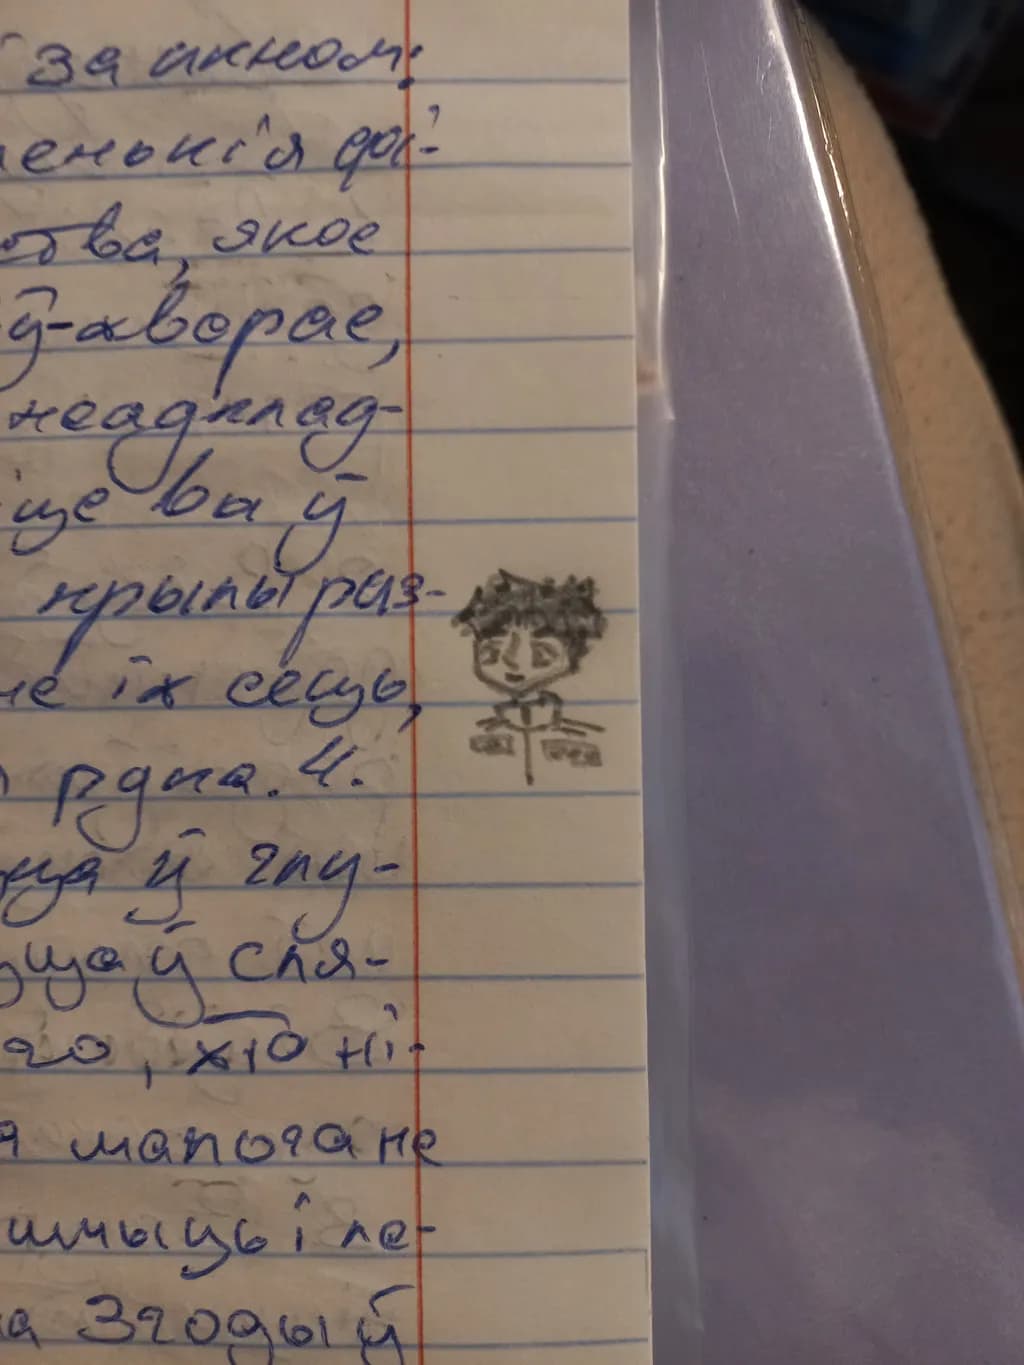 за акном.
енькія фі-
ства, якое
ў-хворае,
неадклад-
іце вы ў
крылы раз-
не іх сець,
рдка. Ч.
ца ў глу-
ўшча ў спя-
аго, хто ні-
я малога не
шчыць і пе-
на Згоды ў